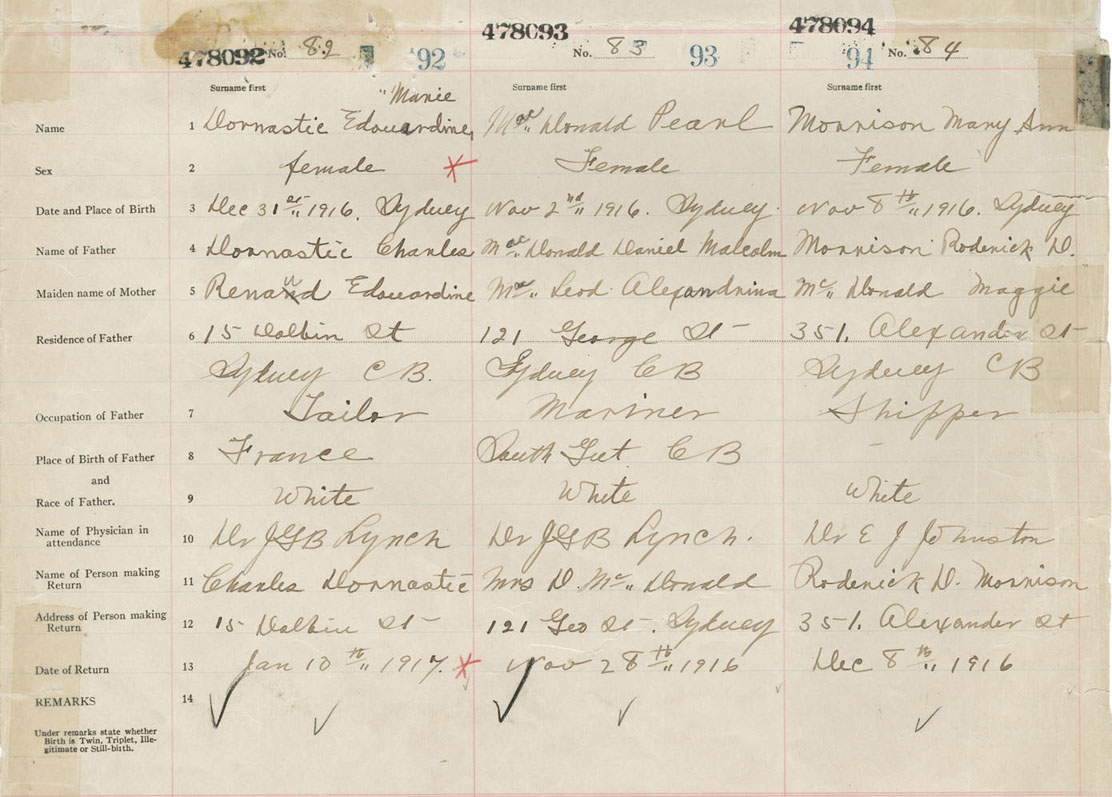 478092 No. 82 92 478093 No. 83 93 478094 94 No. 84
Surname first Surname first Surname first
"Marie
Name 1 Dornastic Edouardine, Mac Donald Pearl Morrison Mary Ann
Sex 2 female Female Female
Date and Place of Birth 3 Dec 31st 1916, Sydney Nov 2nd 1916. Sydney. Nov 8th 1916. Sydney
Name of Father 4 Dornastic Charles Mac Donald Daniel Malcolm Morrison Roderick D.
Maiden name of Mother 5 Edouardine Mac Leod Alexandrina Mc Donald Maggie
Residence of Father 6 15 Dolbin St 121 George St 351. Alexander St
Sydney C B. Sydney C B Sydney C B
Occupation of Father 7 Tailor Mariner Shipper
Place of Birth of Father 8 France South Gut C B -
and
Race of Father. 9 White White White
Name of Physician in
attendance 10 Dr J G B Lynch Dr J G B Lynch. Dr E J Johnston
Name of Person making
Return 11 Charles Dornastic Mrs D. Mc Donald Roderick D. Morrison
Address of Person making
Return 12 15 Dolbin St 121 Geo St. Sydney 351. Alexander St
Date of Return 13 Jan 10th 1917. Nov 28th 1916 Dec 8th 1916
REMARKS 14
Under remarks state whether
Birth is Twin, Triplet, Ille-
gitimate or Still-birth.